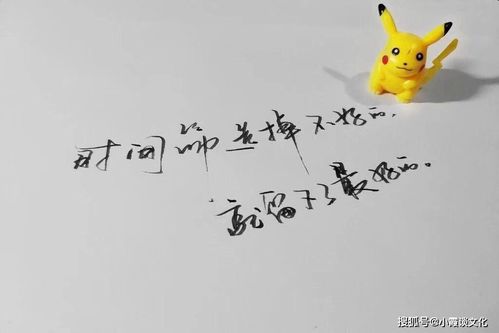 时间筛选掉不好的，
就留下了最好的。
搜狐号@小霞谈文化